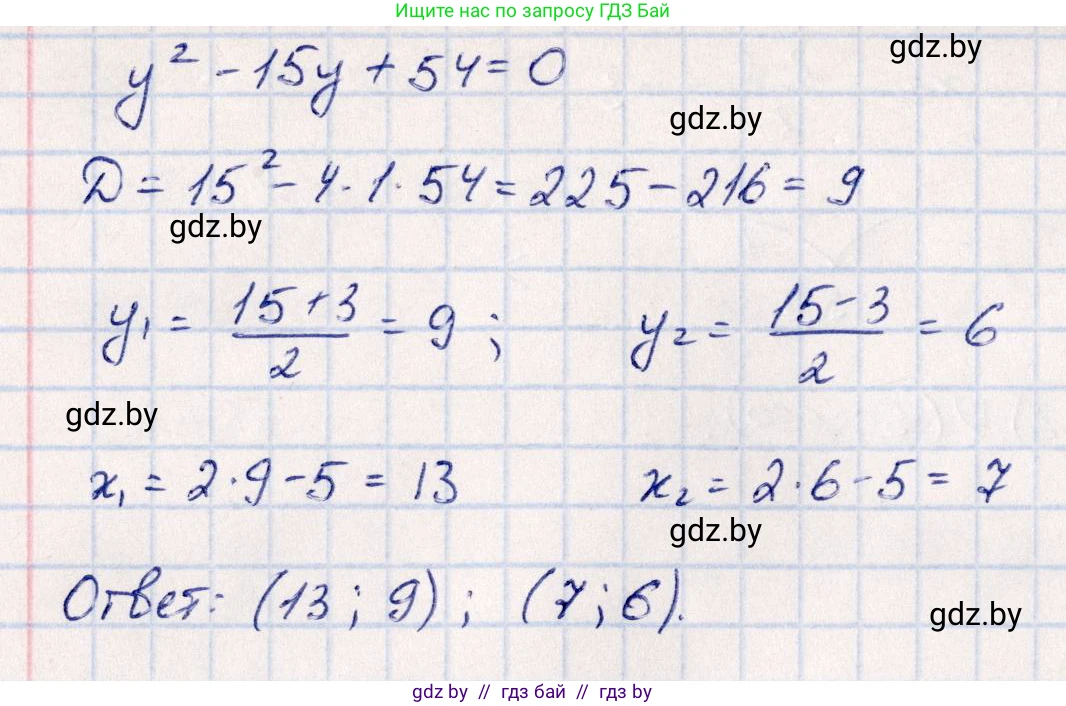 Ищите нас по запросу ГДЗ Бай
gdz.by
y² - 15y + 54 = 0
gdz.by
D = 15² - 4·1·54 = 225 - 216 = 9
gdz.by
y₁ = (15 + 3)/2 = 9 ; y₂ = (15 - 3)/2 = 6
gdz.by
x₁ = 2·9 - 5 = 13 x₂ = 2·6 - 5 = 7
gdz.by
Ответ: (13 ; 9) ; (7 ; 6).
gdz.by
gdz by // гдз бай // гдз by